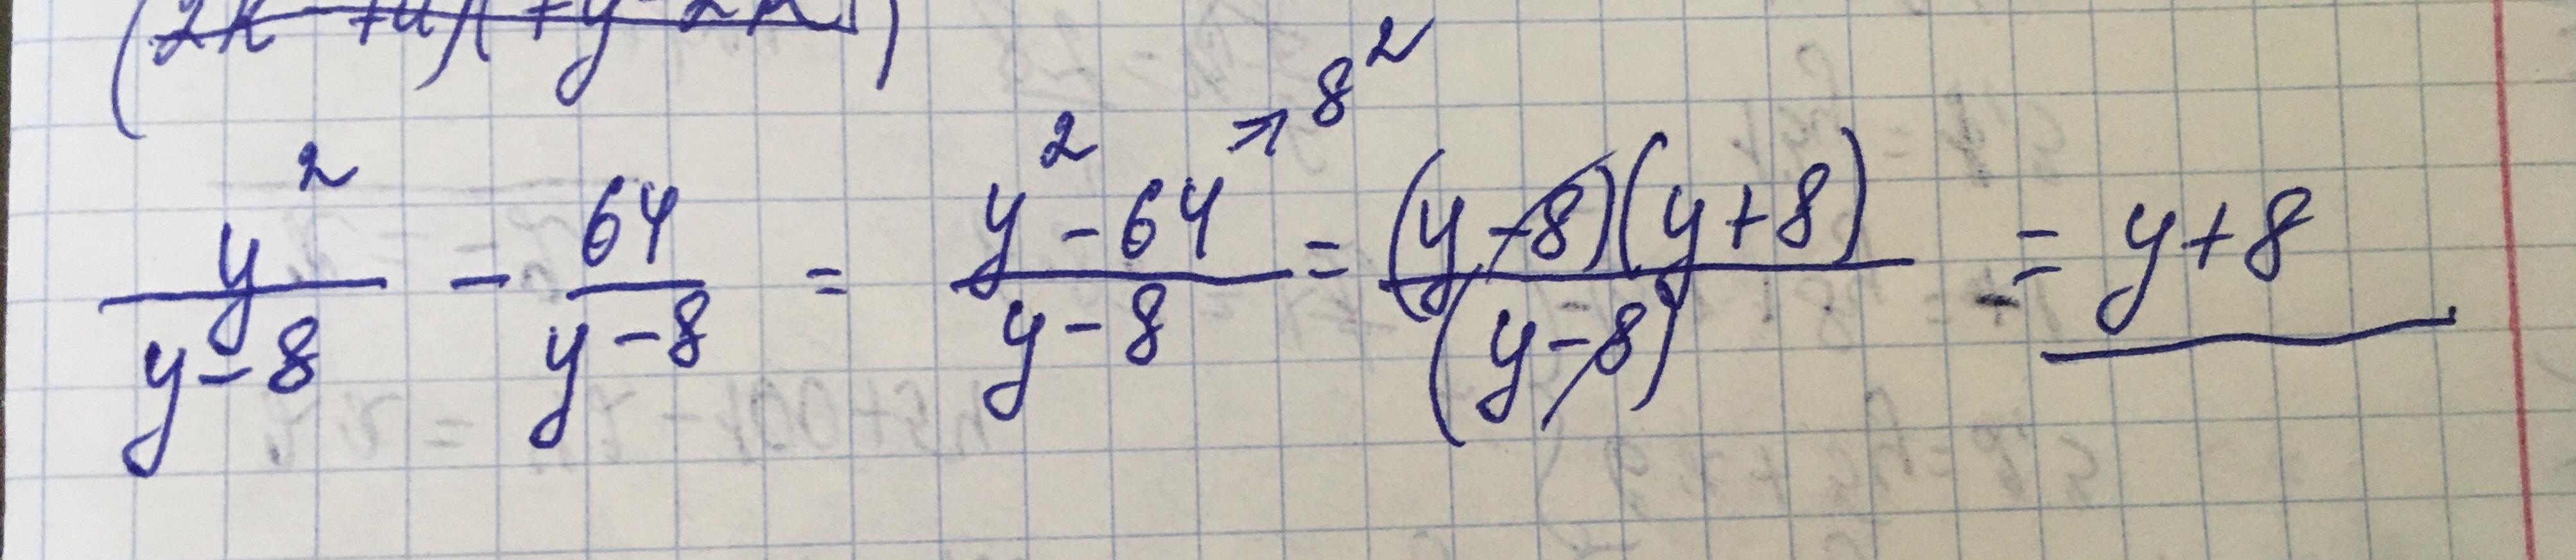 y² / (y-8) - 64 / (y-8) = (y² - 64 → 8²) / (y-8) = (y-8)(y+8) / (y-8) = y+8